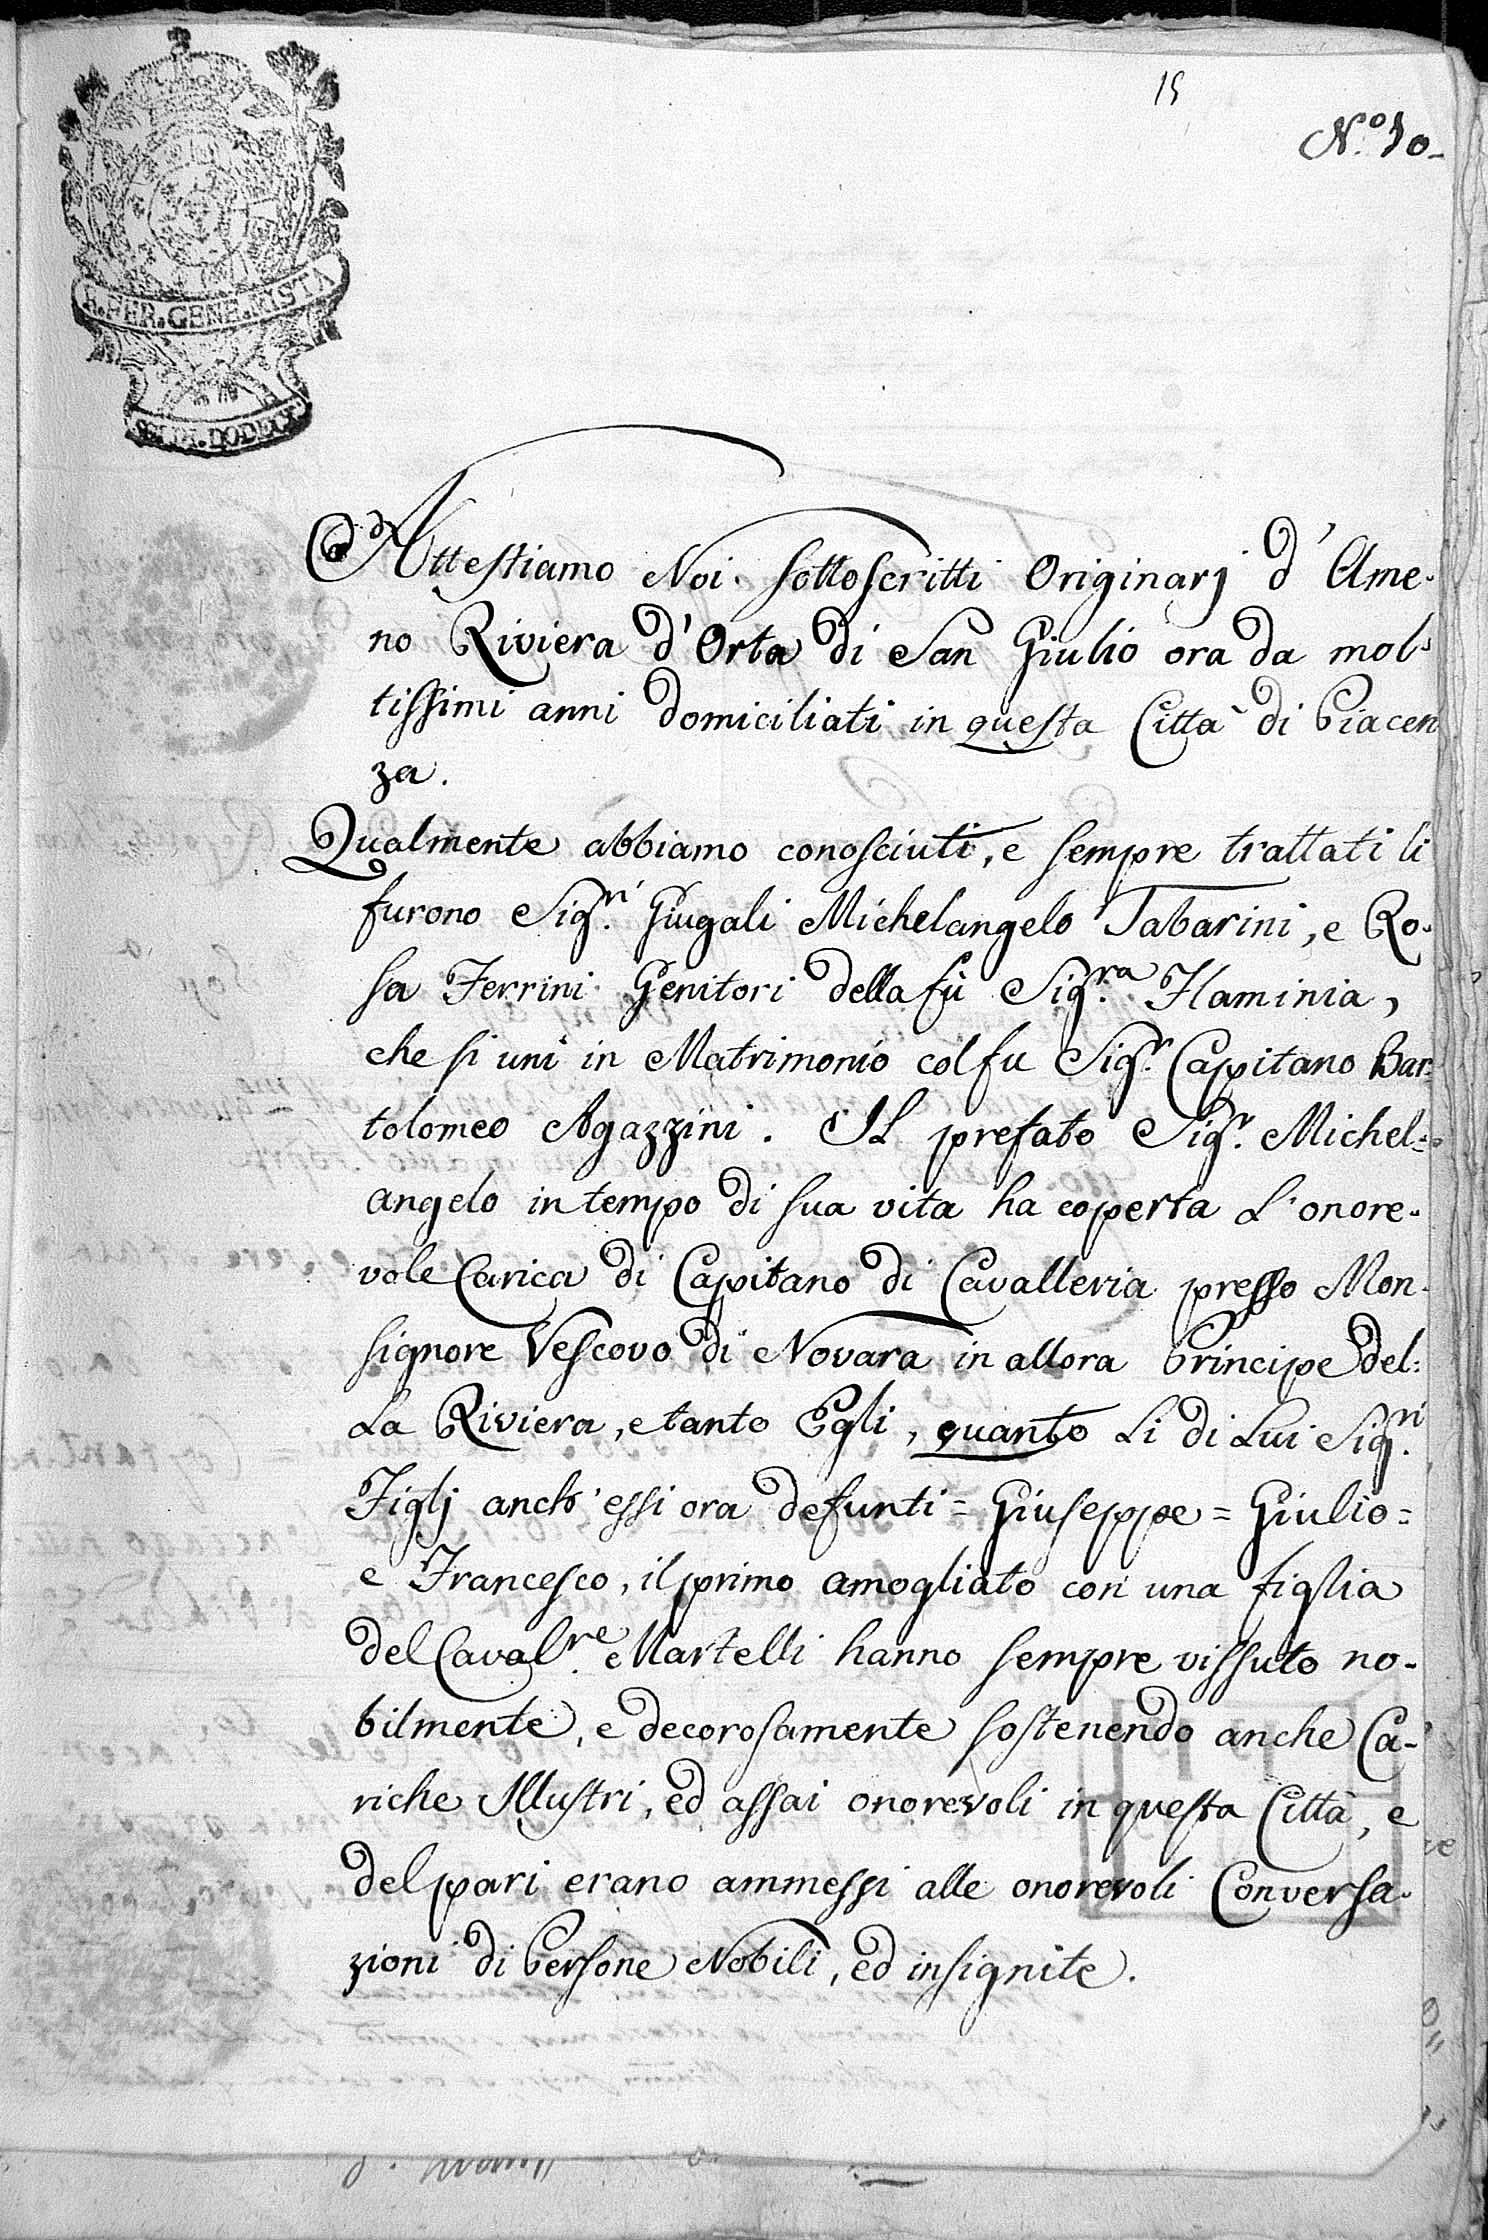 15
N.º 10
R. PER. GENE. MISTA
SOLDI. DODECI
Attestiamo Noi sottoscritti Originarj d'Ame-
no Riviera d'Orta di San Giulio ora da mol-
tissimi anni domiciliati in questa Città di Piacen
za.
Qualmente abbiamo conosciuti, e sempre trattati li
furono Sig.ri Giugali Michelangelo Tabarini, e Ro-
sa Ferrini Genitori della fù Sig.ra Flaminia,
che si unì in Matrimonio col fu Sig.r Capitano Bar=
tolomeo Agazzini. Il prefato Sig.r Michel=
angelo in tempo di sua vita ha coperta l'onore-
vole Carica di Capitano di Cavalleria presso Mon-
signore Vescovo di Novara in allora Principe del=
la Riviera, e tanto Egli, quanto li di Lui Sig.ri
Figlj anch'essi ora defunti = Giuseppe = Giulio =
e Francesco, il primo amogliato con una figlia
del Caval.re Martelli hanno sempre vissuto no-
bilmente, e decorosamente sostenendo anche Ca-
riche Illustri, ed assai onorevoli in questa Città, e
del pari erano ammessi alle onorevoli Conversa-
zioni di Persone Nobili, ed insignite.